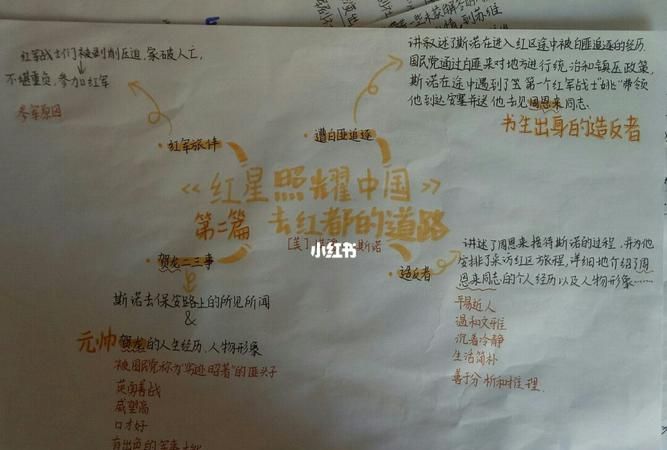 红军战士们被剥削压迫,家破人亡,
不堪重负,参加红军
参军原因
红军旅伴
讲叙述了斯诺在进入红区途中被白匪追逐的经历.
国民党通过白匪来对地方进行统治和镇压政策,
斯诺在途中遇到了第一个红军战士"他"带领
他到达安塞并送他去见周恩来同志.
书生出身的造反者
遭白匪追逐
《红星照耀中国》
第二篇 去红都的道路
[美] 斯诺
小红书
贺龙二三事
斯诺去保安路上的所见所闻
&
元帅贺龙的人生经历.人物形象
被国民党称为"劣迹昭著"的匪头子
英勇善战
威望高
口才好
有出色的军事
造反者
讲述了周恩来接待斯诺的过程,并为他
安排了采访红区旅程,详细地介绍了周
恩来同志的个人经历以及人物形象……
平易近人
温和文雅
沉着冷静
生活简朴
善于分析和推理.